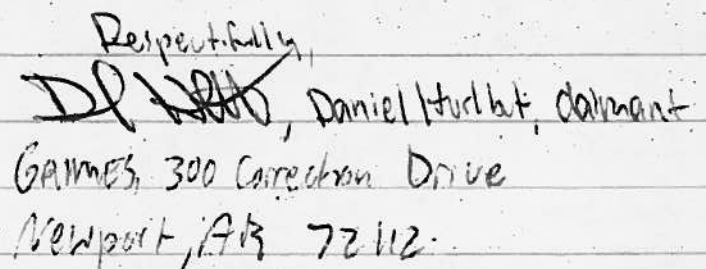 Respectfully,
Daniel Hurlbut, claimant
300 Correction Drive
Newport, AR 72112.